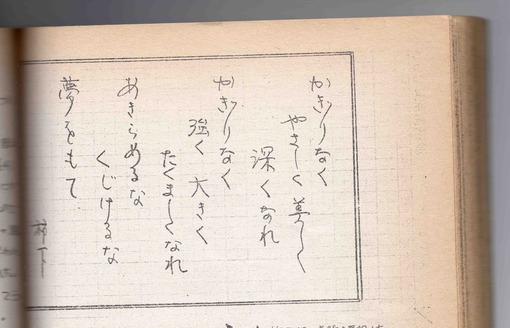 かぎりなく
やさしく美しく
深くなれ
かぎりなく
強く大きく
たくましくなれ
あきらめるな
くじけるな
夢をもて